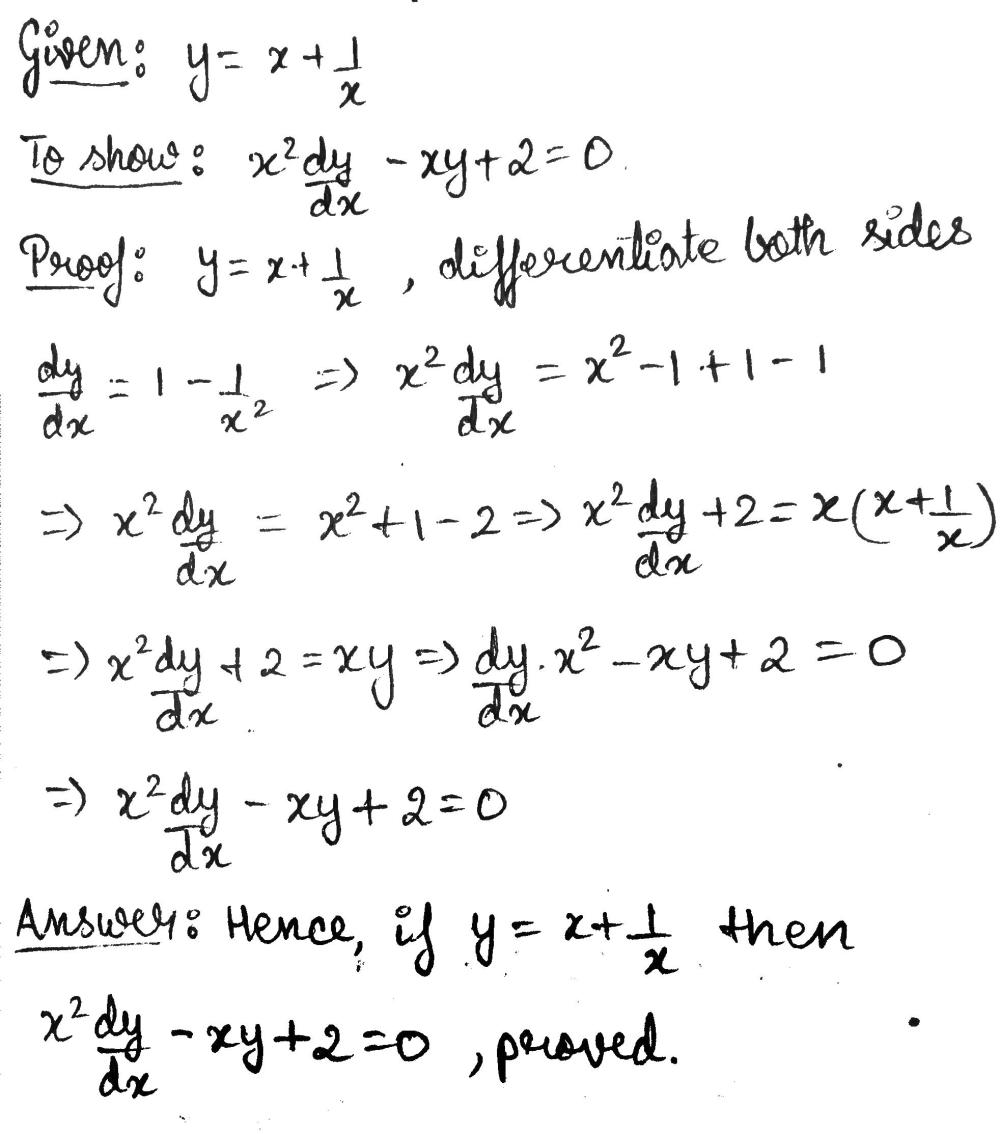 Given: y = x + 1/x
To show: x² dy/dx - xy + 2 = 0.
Proof: y = x + 1/x , differentiate both sides
dy/dx = 1 - 1/x² => x² dy/dx = x² - 1 + 1 - 1
=> x² dy/dx = x² + 1 - 2 => x² dy/dx + 2 = x(x + 1/x)
=> x² dy/dx + 2 = xy => dy/dx . x² - xy + 2 = 0
=> x² dy/dx - xy + 2 = 0
Answer: Hence, if y = x + 1/x then
x² dy/dx - xy + 2 = 0 , proved.